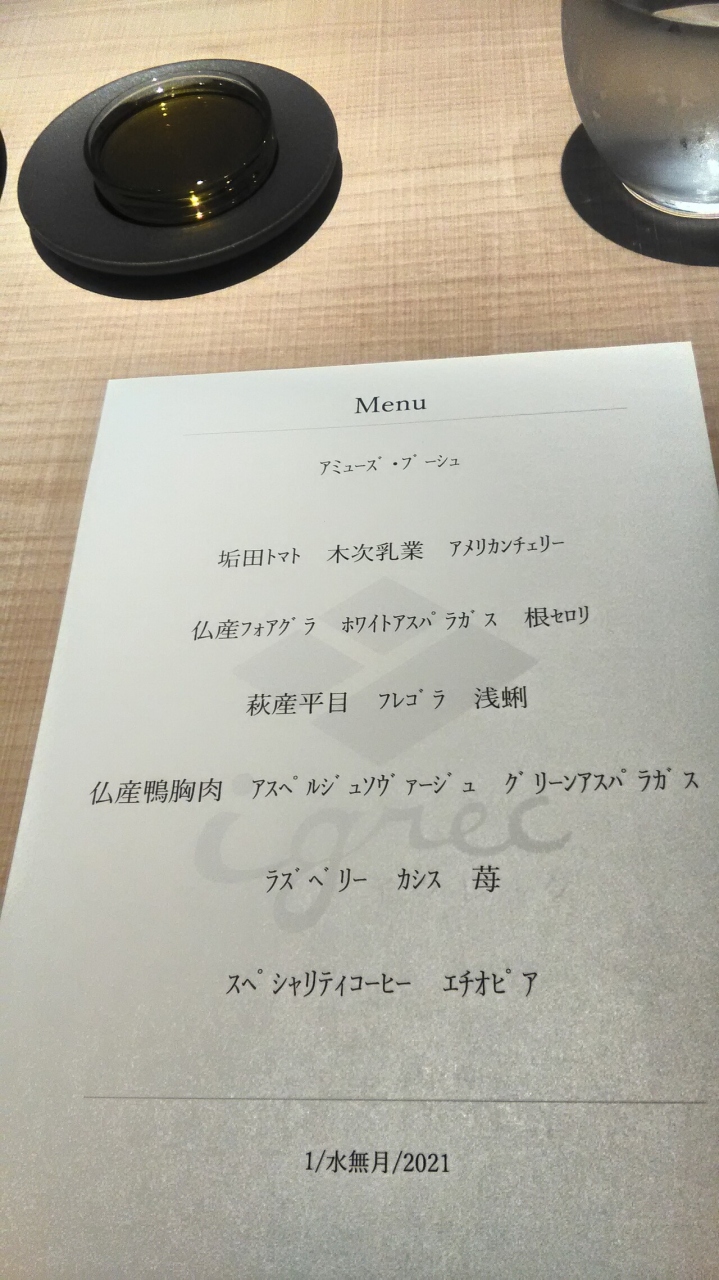 Menu
ｱﾐｭｰｽﾞ・ﾌﾞｰｼｭ
垢田ﾄﾏﾄ　木次乳業　ｱﾒﾘｶﾝﾁｪﾘｰ
仏産ﾌｫｱｸﾞﾗ　ﾎﾜｲﾄｱｽﾊﾟﾗｶﾞｽ　根ｾﾛﾘ
萩産平目　ﾌﾚｺﾞﾗ　浅蜊
仏産鴨胸肉　ｱｽﾍﾟﾙｼﾞｭｿｳﾞｧｰｼﾞｭ　ｸﾞﾘｰﾝｱｽﾊﾟﾗｶﾞｽ
igrec
ﾗｽﾞﾍﾞﾘｰ　ｶｼｽ　苺
ｽﾍﾟｼｬﾘﾃｨｺｰﾋｰ　ｴﾁｵﾋﾟｱ
1/水無月/2021